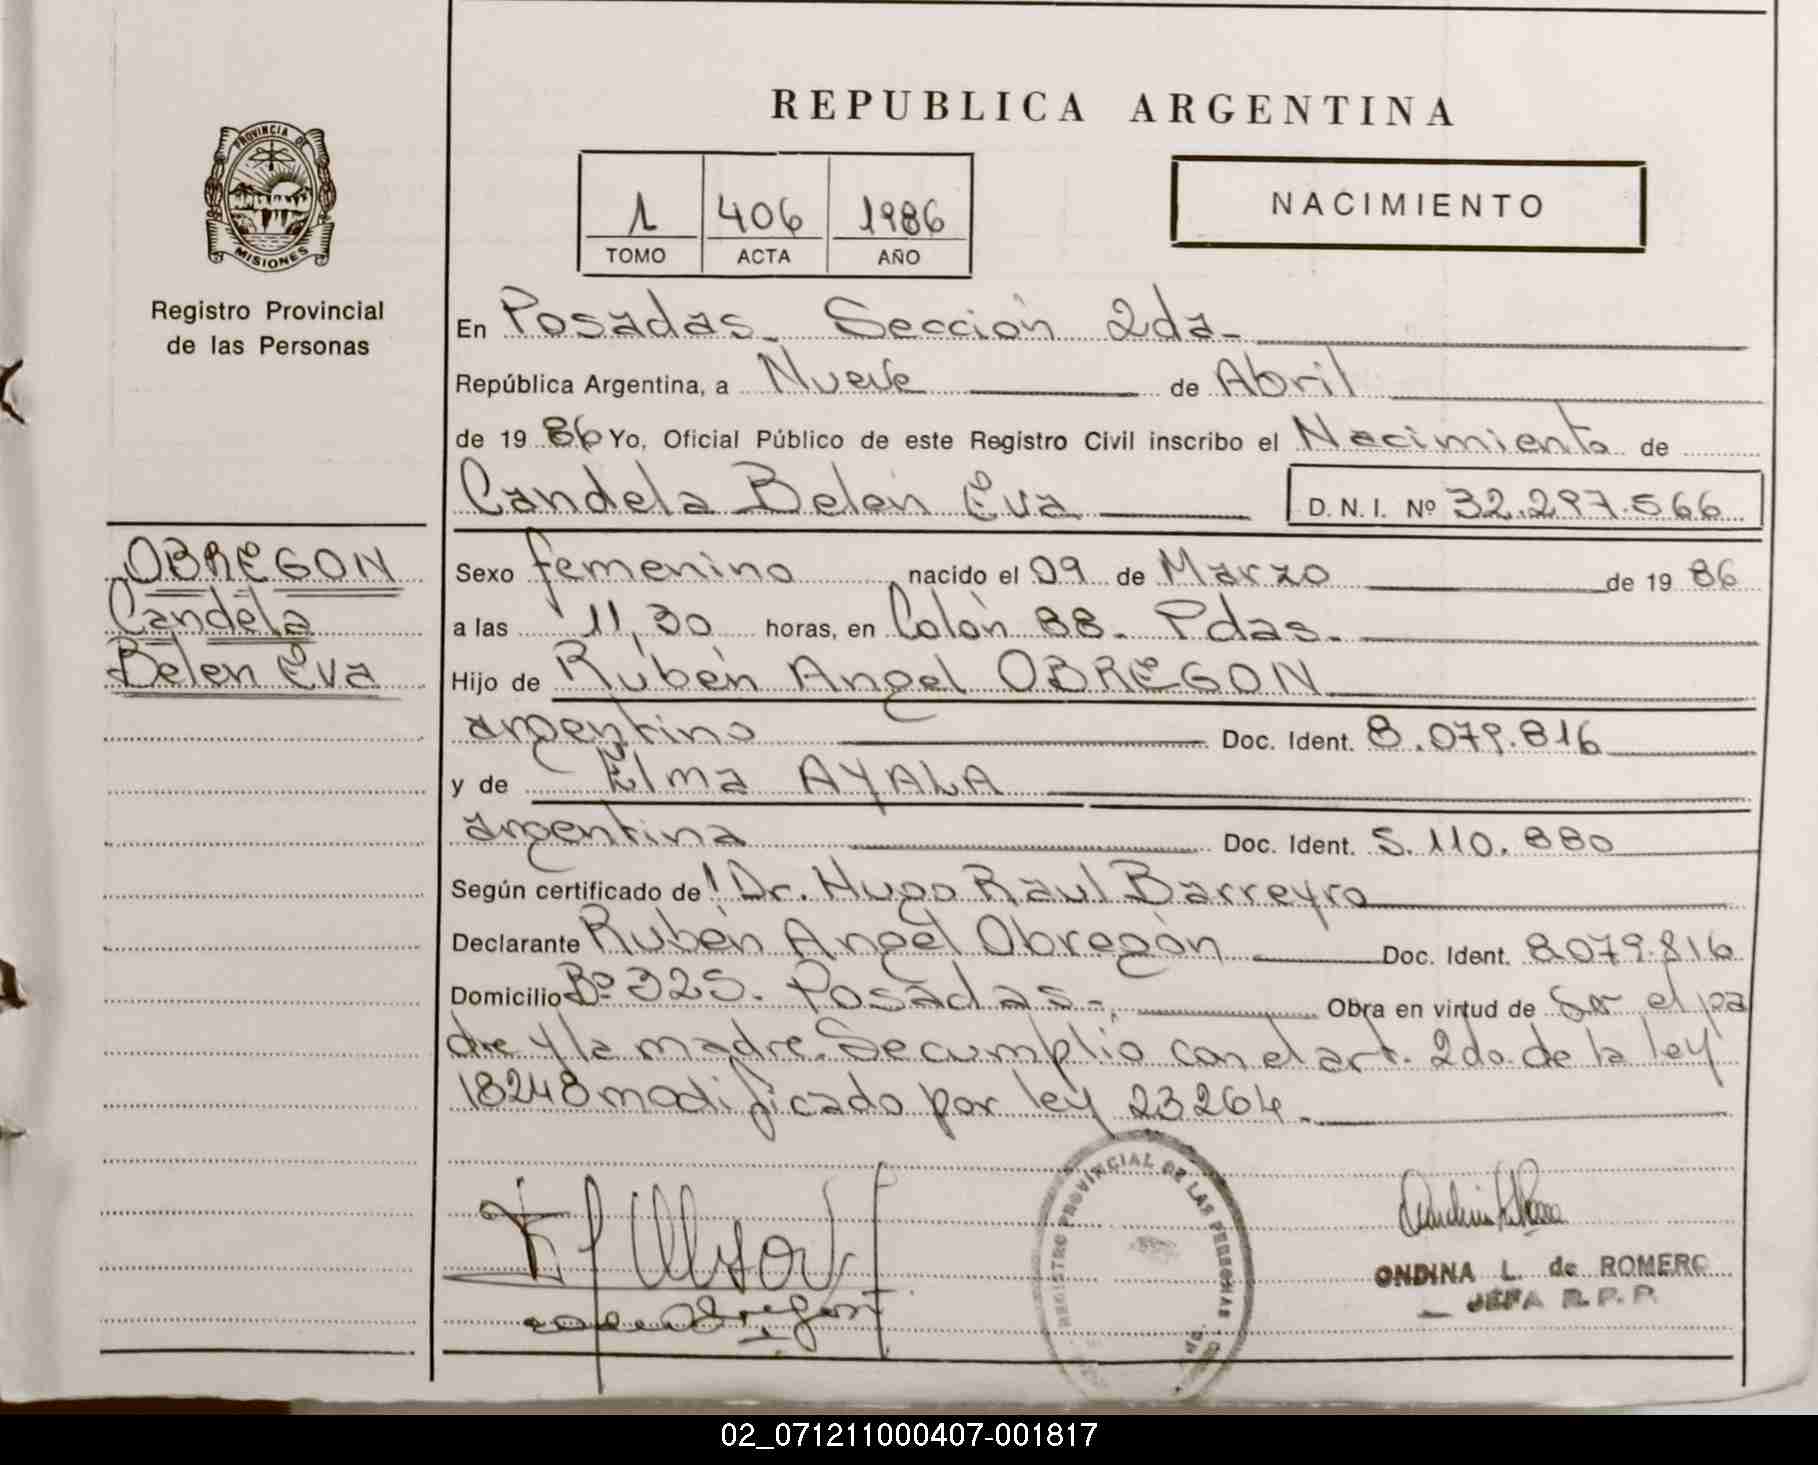 REPUBLICA ARGENTINA
PROVINCIA DE
MISIONES
Registro Provincial
de las Personas
1 406 1986
TOMO ACTA AÑO
NACIMIENTO
En Posadas. Sección 2da-
República Argentina, a Nueve de Abril
de 19 86 Yo, Oficial Público de este Registro Civil inscribo el Nacimiento de
Candela Belén Eva D. N. I. Nº 32.297.566
OBREGON
Candela
Belen Eva
Sexo femenino nacido el 09 de Marzo de 19 86
a las 11,30 horas, en Colón 88. Pdas.
Hijo de Rubén Angel OBREGON
argentino Doc. Ident. 8.079.816
y de Elma AYALA
argentina Doc. Ident. 5.110.880
Según certificado de Dr. Hugo Raul Barreyro
Declarante Rubén Angel Obregón Doc. Ident. 8079.816
Domicilio Bº 325. Posadas. Obra en virtud de Ser el pa
dre y la madre. Se cumplió con el art. 2do. de la ley
18248 modificado por ley 23264.
REGISTRO PROVINCIAL DE LAS PERSONAS
ONDINA L. de ROMERO
JEFA R. P. P.
02_071211000407-001817